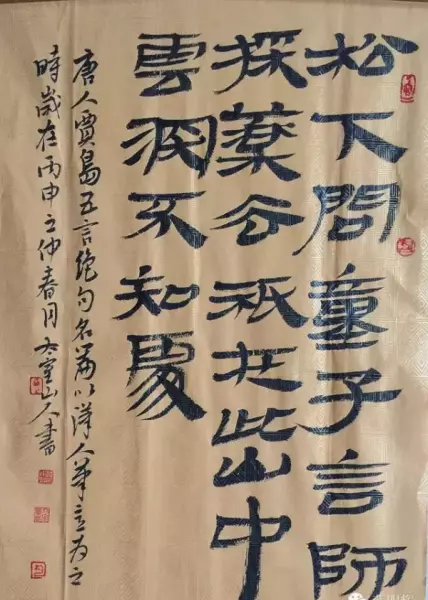 松下問童子言師
採藥谷祇在此山中
雲深不知處
唐人賈島五言絕句名篇以漢人筆意為之
時歲在丙申之仲春月太室山人書